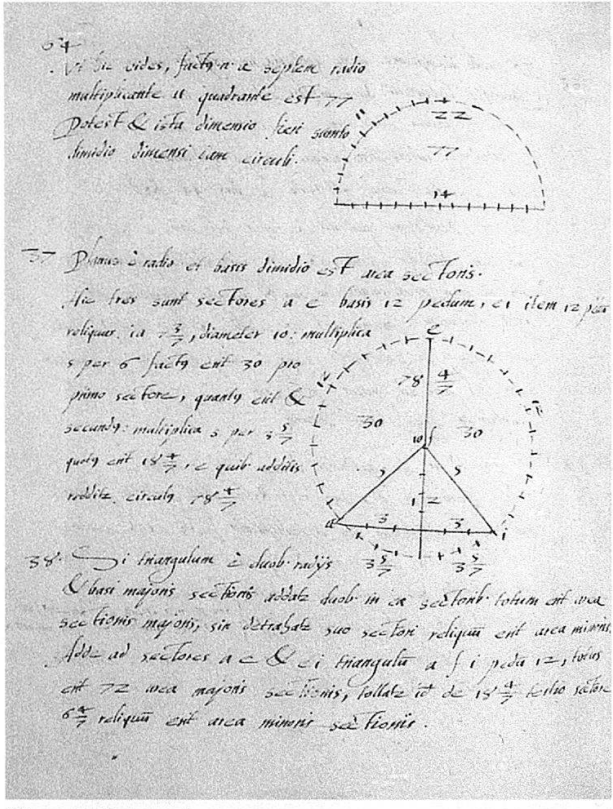 64
Ut hic vides, factꝰ a septem radio
multiplicante u quadrante est 77
Potest & ista dimensio fieri sumto
dimidio dimensi iam circuli.
11
22
77
14
37 Planus è radio et basis dimidio est area sectoris.
Hic tres sunt sectores a e basis 12 pedum, ei item 12 pedū
reliquus ia 7 3/7, diameter 10: multiplica
5 per 6 factꝰ erit 30 pro
primo sectore, quantꝰ erit &
secundꝰ: multiplica 5 per 3 5/7
quotꝰ erit 18 4/7, e quib additis
redditr circulꝰ 78 4/7
e
78 4/7
12
12
30
30
10
f
5
5
1
2
a
3
3
i
3 5/7
3 5/7
38 Si triangulum è duob. radijs
& basi majoris sectionis addatr duob. in ea sectorib. totum erit area
sectionis majoris, sin detrahatr suo sectori reliquū erit area minoris.
Adde ad sectores a e & e i triangulū a f i pedū 12, totus
erit 72 area majoris sectionis, tollatr id de 18 4/7 tertio sectore
6 4/7 reliquū erit area minoris sectionis.